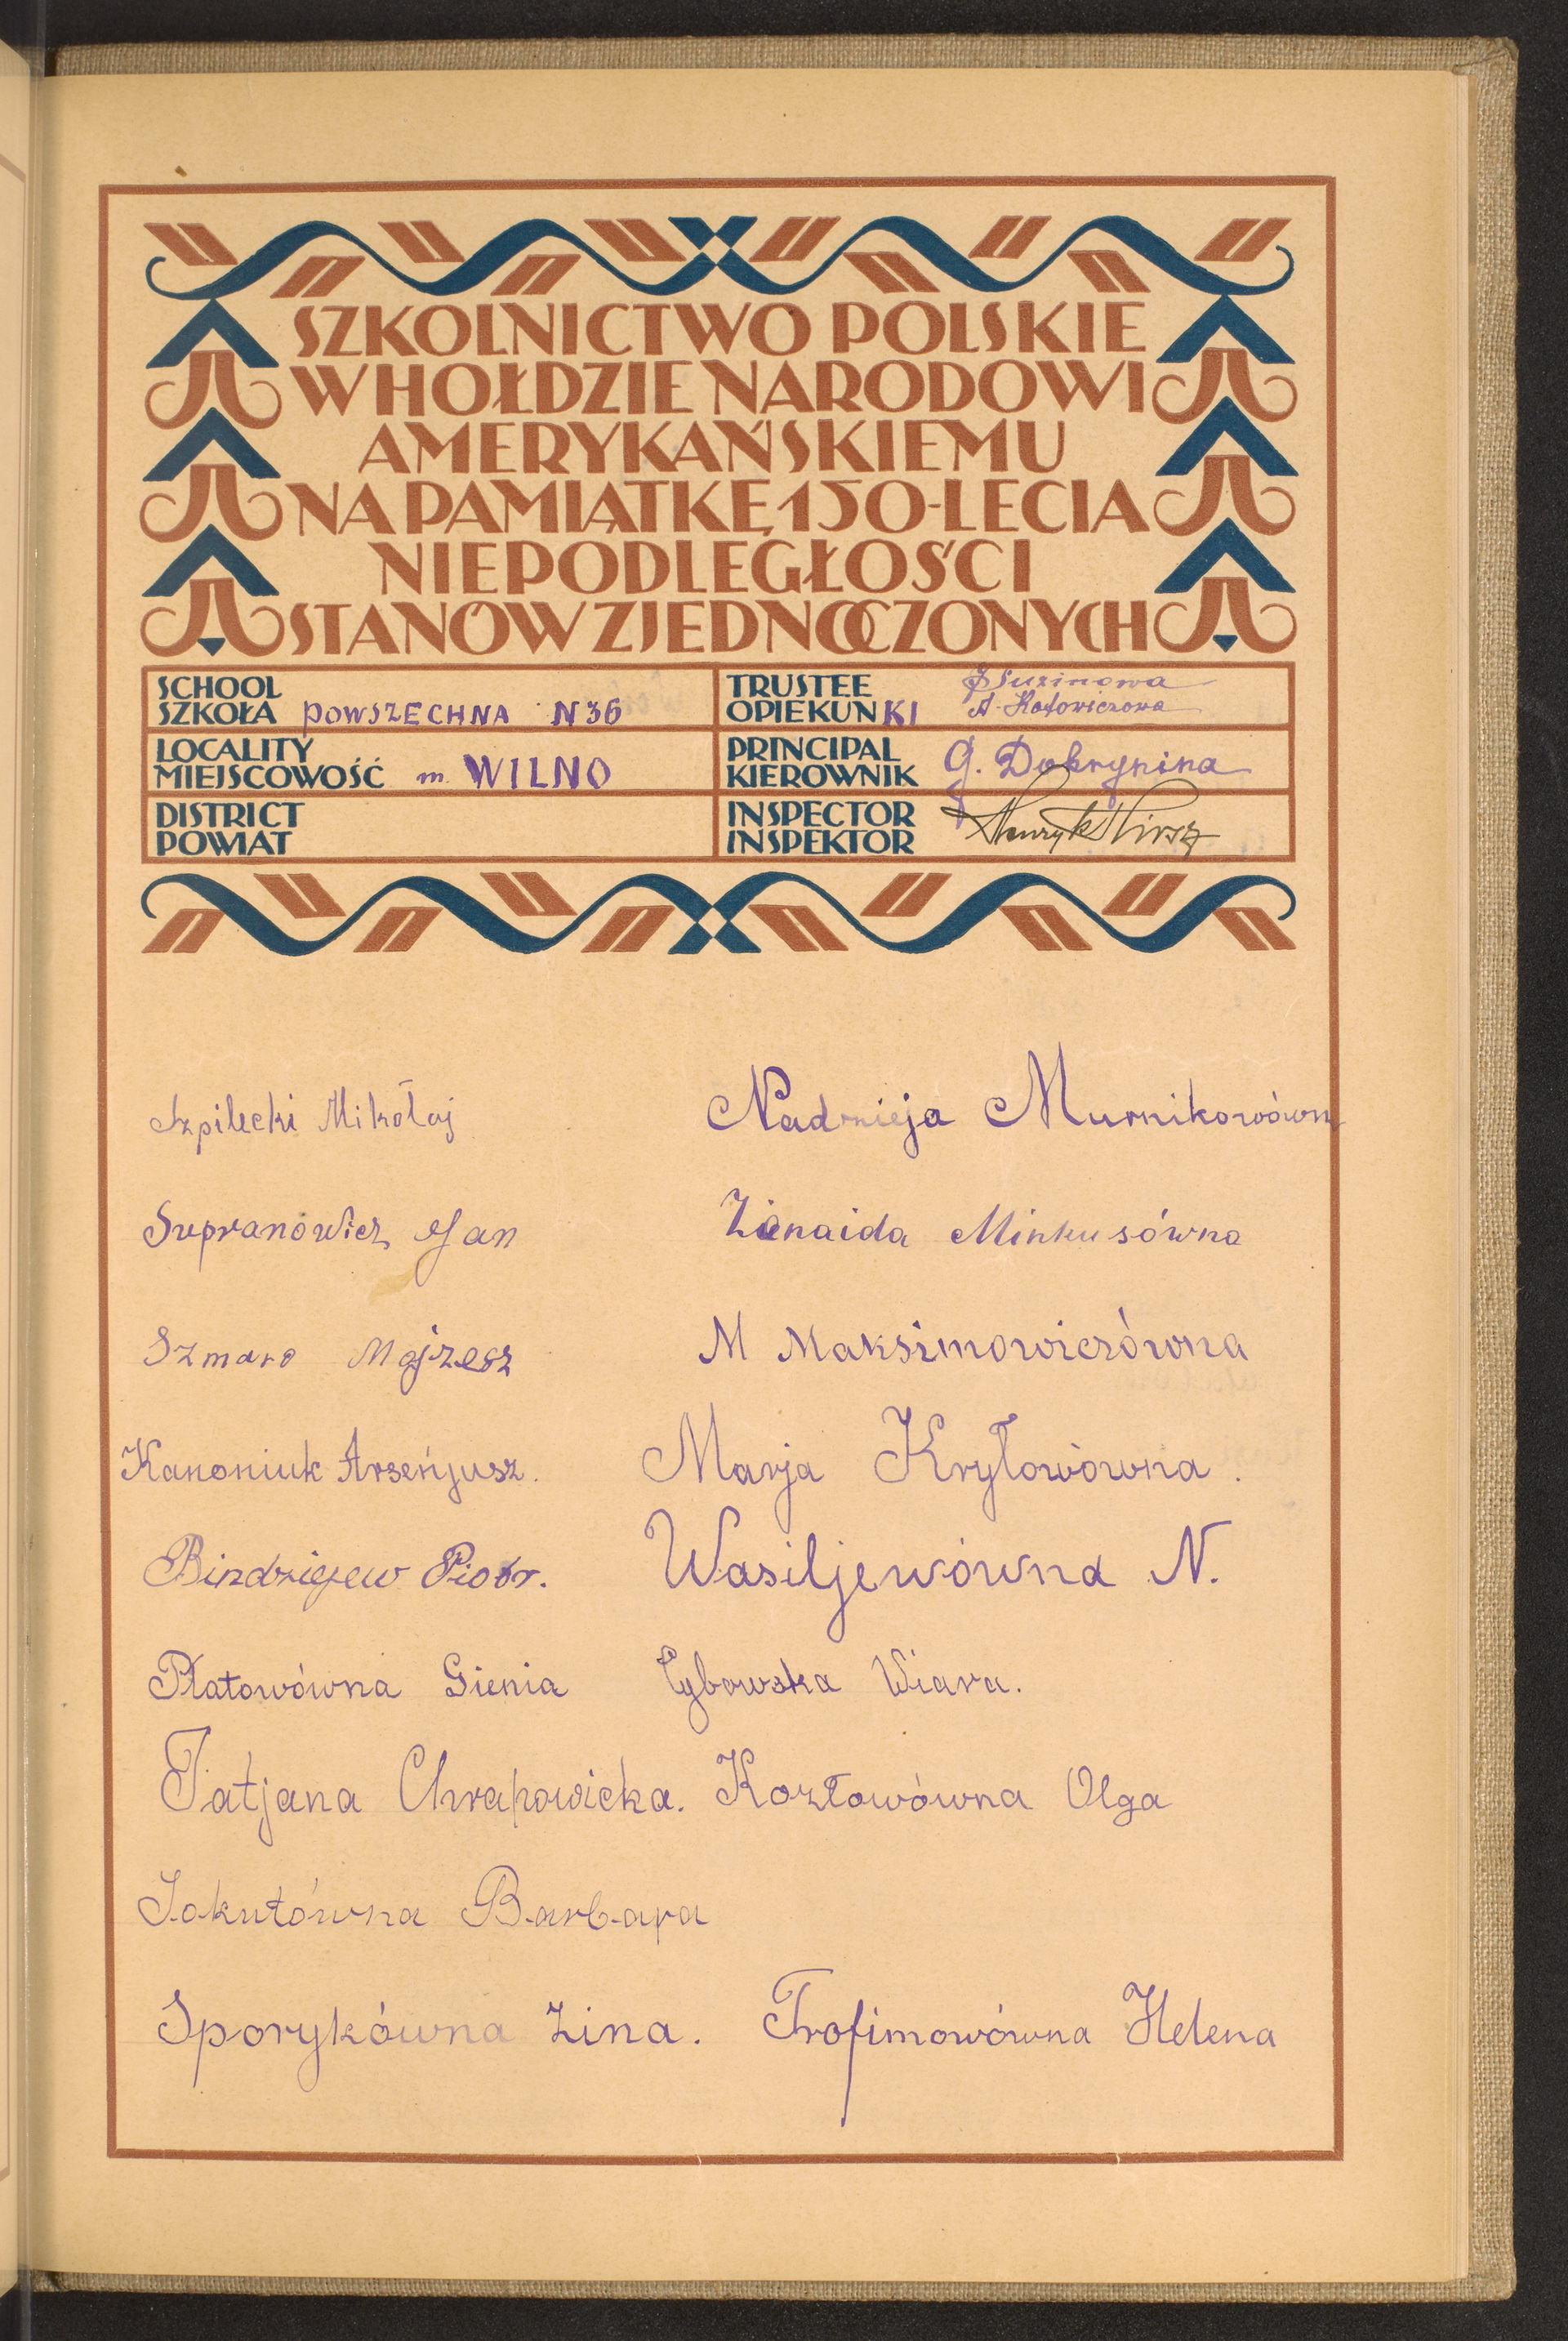 SZKOLNICTWO POLSKIE
W HOŁDZIE NARODOWI
AMERYKAŃSKIEMU
NA PAMIĄTKĘ 150-LECIA
NIEPODLEGŁOŚCI
STANÓW ZJEDNOCZONYCH
SCHOOL
SZKOŁA POWSZECHNA N 36
TRUSTEE
OPIEKUNKI
A. Kotowiczowa
LOCALITY
MIEJSCOWOŚĆ m. WILNO
PRINCIPAL
KIEROWNIK G. Dobrynina
DISTRICT
POWIAT
INSPECTOR
INSPEKTOR Henryk
Szpilecki Mikołaj
Nadzieja Murnikowówn
Supranowicz Jan
Zinaida Minkusówna
Szmaro Mojzesz
M Maksimowiczówna
Kanoniuk Arsenjusz.
Marja Kryłowówna.
Bindziejew Piotr.
Wasiljewówna N.
Płatowówna Gienia
Cybowska Wiara.
Tatjana Chrapowicka.
Kozłowówna Olga
Jakutówna Barbara
Sporykówna Zina.
Trofimowówna Helena